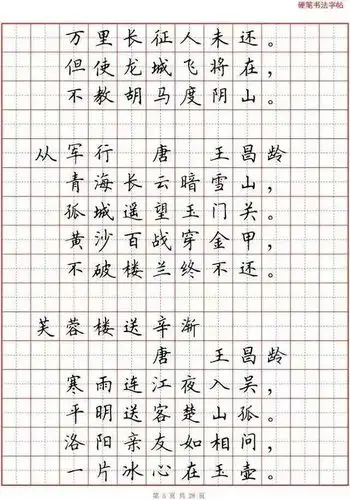 硬笔书法字帖
万里长征人未还。
但使龙城飞将在，
不教胡马度阴山。
从军行 唐 王昌龄
青海长云暗雪山，
孤城遥望玉门关。
黄沙百战穿金甲，
不破楼兰终不还。
芙蓉楼送辛渐
唐 王昌龄
寒雨连江夜入吴，
平明送客楚山孤。
洛阳亲友如相问，
一片冰心在玉壶。
第 5 页 共 28 页